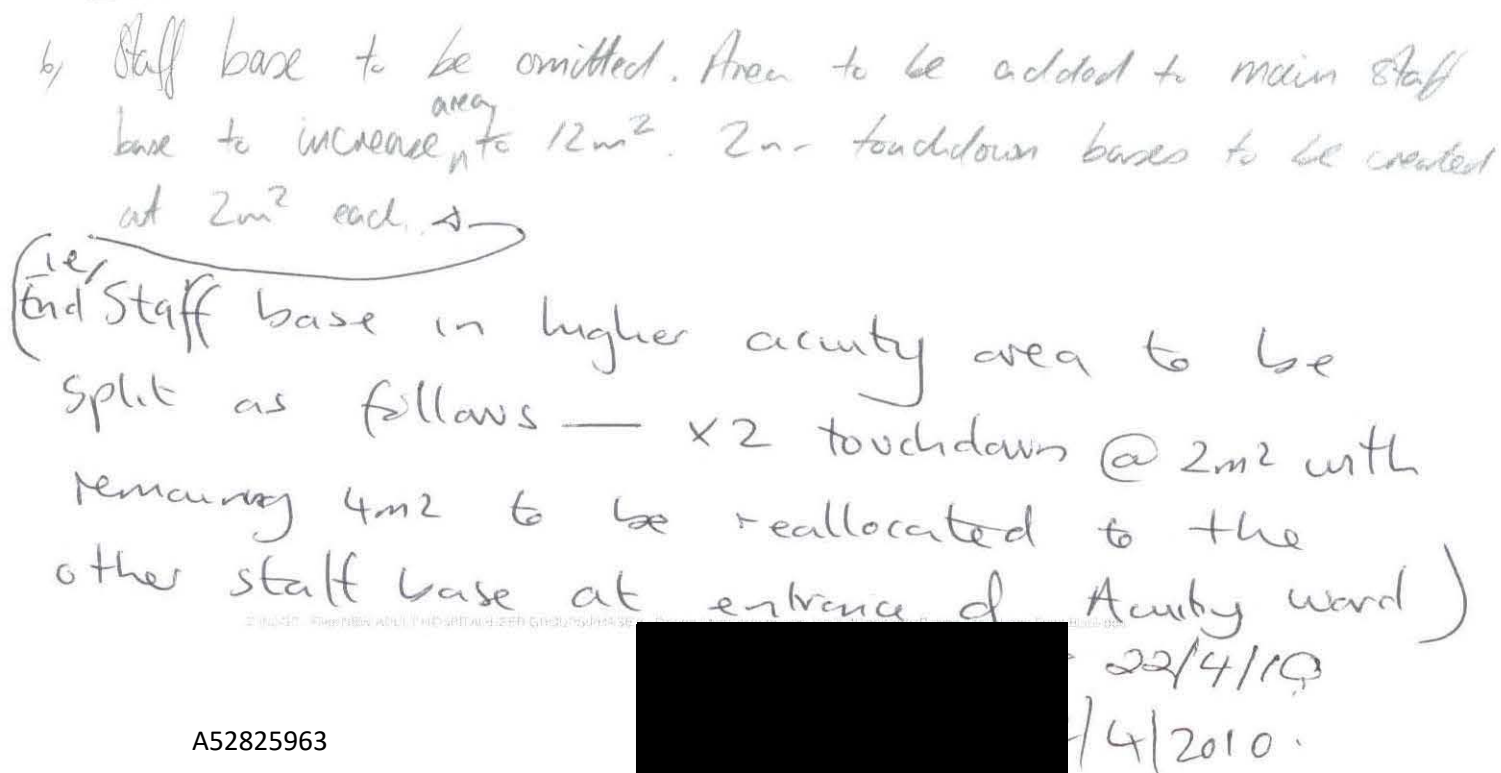 b, Staff base to be omitted. Area to be added to main staff
base to increase area to 12m². 2nr touchdown bases to be created
at 2m² each.
(ie,
End Staff base in higher acuity area to be
split as follows — x2 touchdown @ 2m2 with
remaining 4m2 to be reallocated to the
other staff base at entrance of Acuity ward)
22/4/10
/4/2010.
A52825963